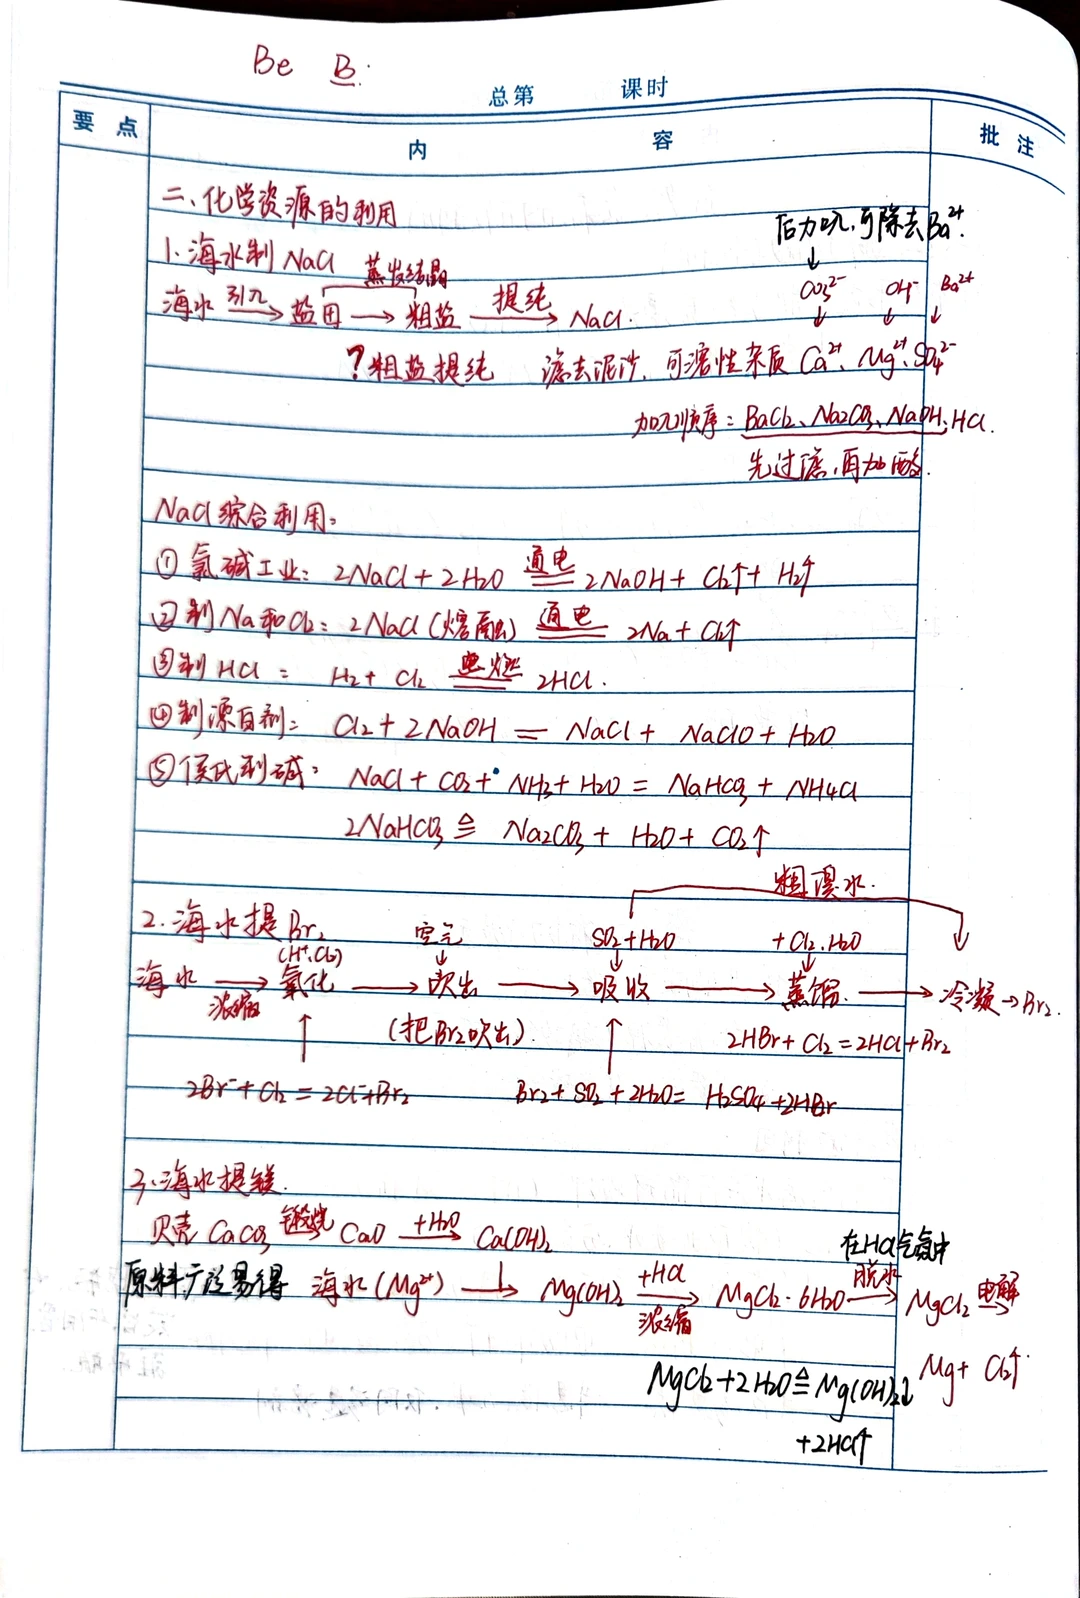 Be B.
总第 课时
要点 内容 批注
二、化学资源的利用
后加入,可除去Ba²⁺.
1. 海水制 NaCl
↓
CO₃²⁻ OH⁻ Ba²⁺
↓ ↓ ↓
蒸发结晶
海水 引入→ 盐田 → 粗盐 提纯→ NaCl.
?粗盐提纯 滤去泥沙, 可溶性杂质 Ca²⁺、Mg²⁺、SO₄²⁻
加入顺序: BaCl₂、Na₂CO₃、NaOH、HCl.
先过滤,再加酸.
NaCl综合利用:
① 氯碱工业: 2NaCl + 2H₂O 通电═ 2NaOH + Cl₂↑ + H₂↑
② 制Na和Cl₂: 2NaCl(熔融) 通电═ 2Na + Cl₂↑
③ 制HCl: H₂ + Cl₂ 点燃═ 2HCl.
④ 制漂白剂: Cl₂ + 2NaOH = NaCl + NaClO + H₂O
⑤ 侯氏制碱: NaCl + CO₂ + NH₃ + H₂O = NaHCO₃ + NH₄Cl
2NaHCO₃ ≜ Na₂CO₃ + H₂O + CO₂↑
粗溴水.
2. 海水提Br₂
(H⁺.Cl₂) 空气 SO₂+H₂O +Cl₂.H₂O
海水 浓缩→ 氧化 → 吹出 → 吸收 → 蒸馏 → 冷凝→Br₂.
(把Br₂吹出). 2HBr + Cl₂ = 2HCl + Br₂
2Br⁻ + Cl₂ = 2Cl⁻ + Br₂ Br₂ + SO₂ + 2H₂O = H₂SO₄ + 2HBr
3. 海水提镁.
贝壳 CaCO₃ 煅烧→ CaO +H₂O→ Ca(OH)₂
在HCl气氛中
原料广泛易得 海水(Mg²⁺) → Mg(OH)₂ +HCl 浓缩→ MgCl₂·6H₂O 脱水→ MgCl₂ 电解→
Mg + Cl₂↑.
MgCl₂+2H₂O≜Mg(OH)₂↓
+2HCl↑